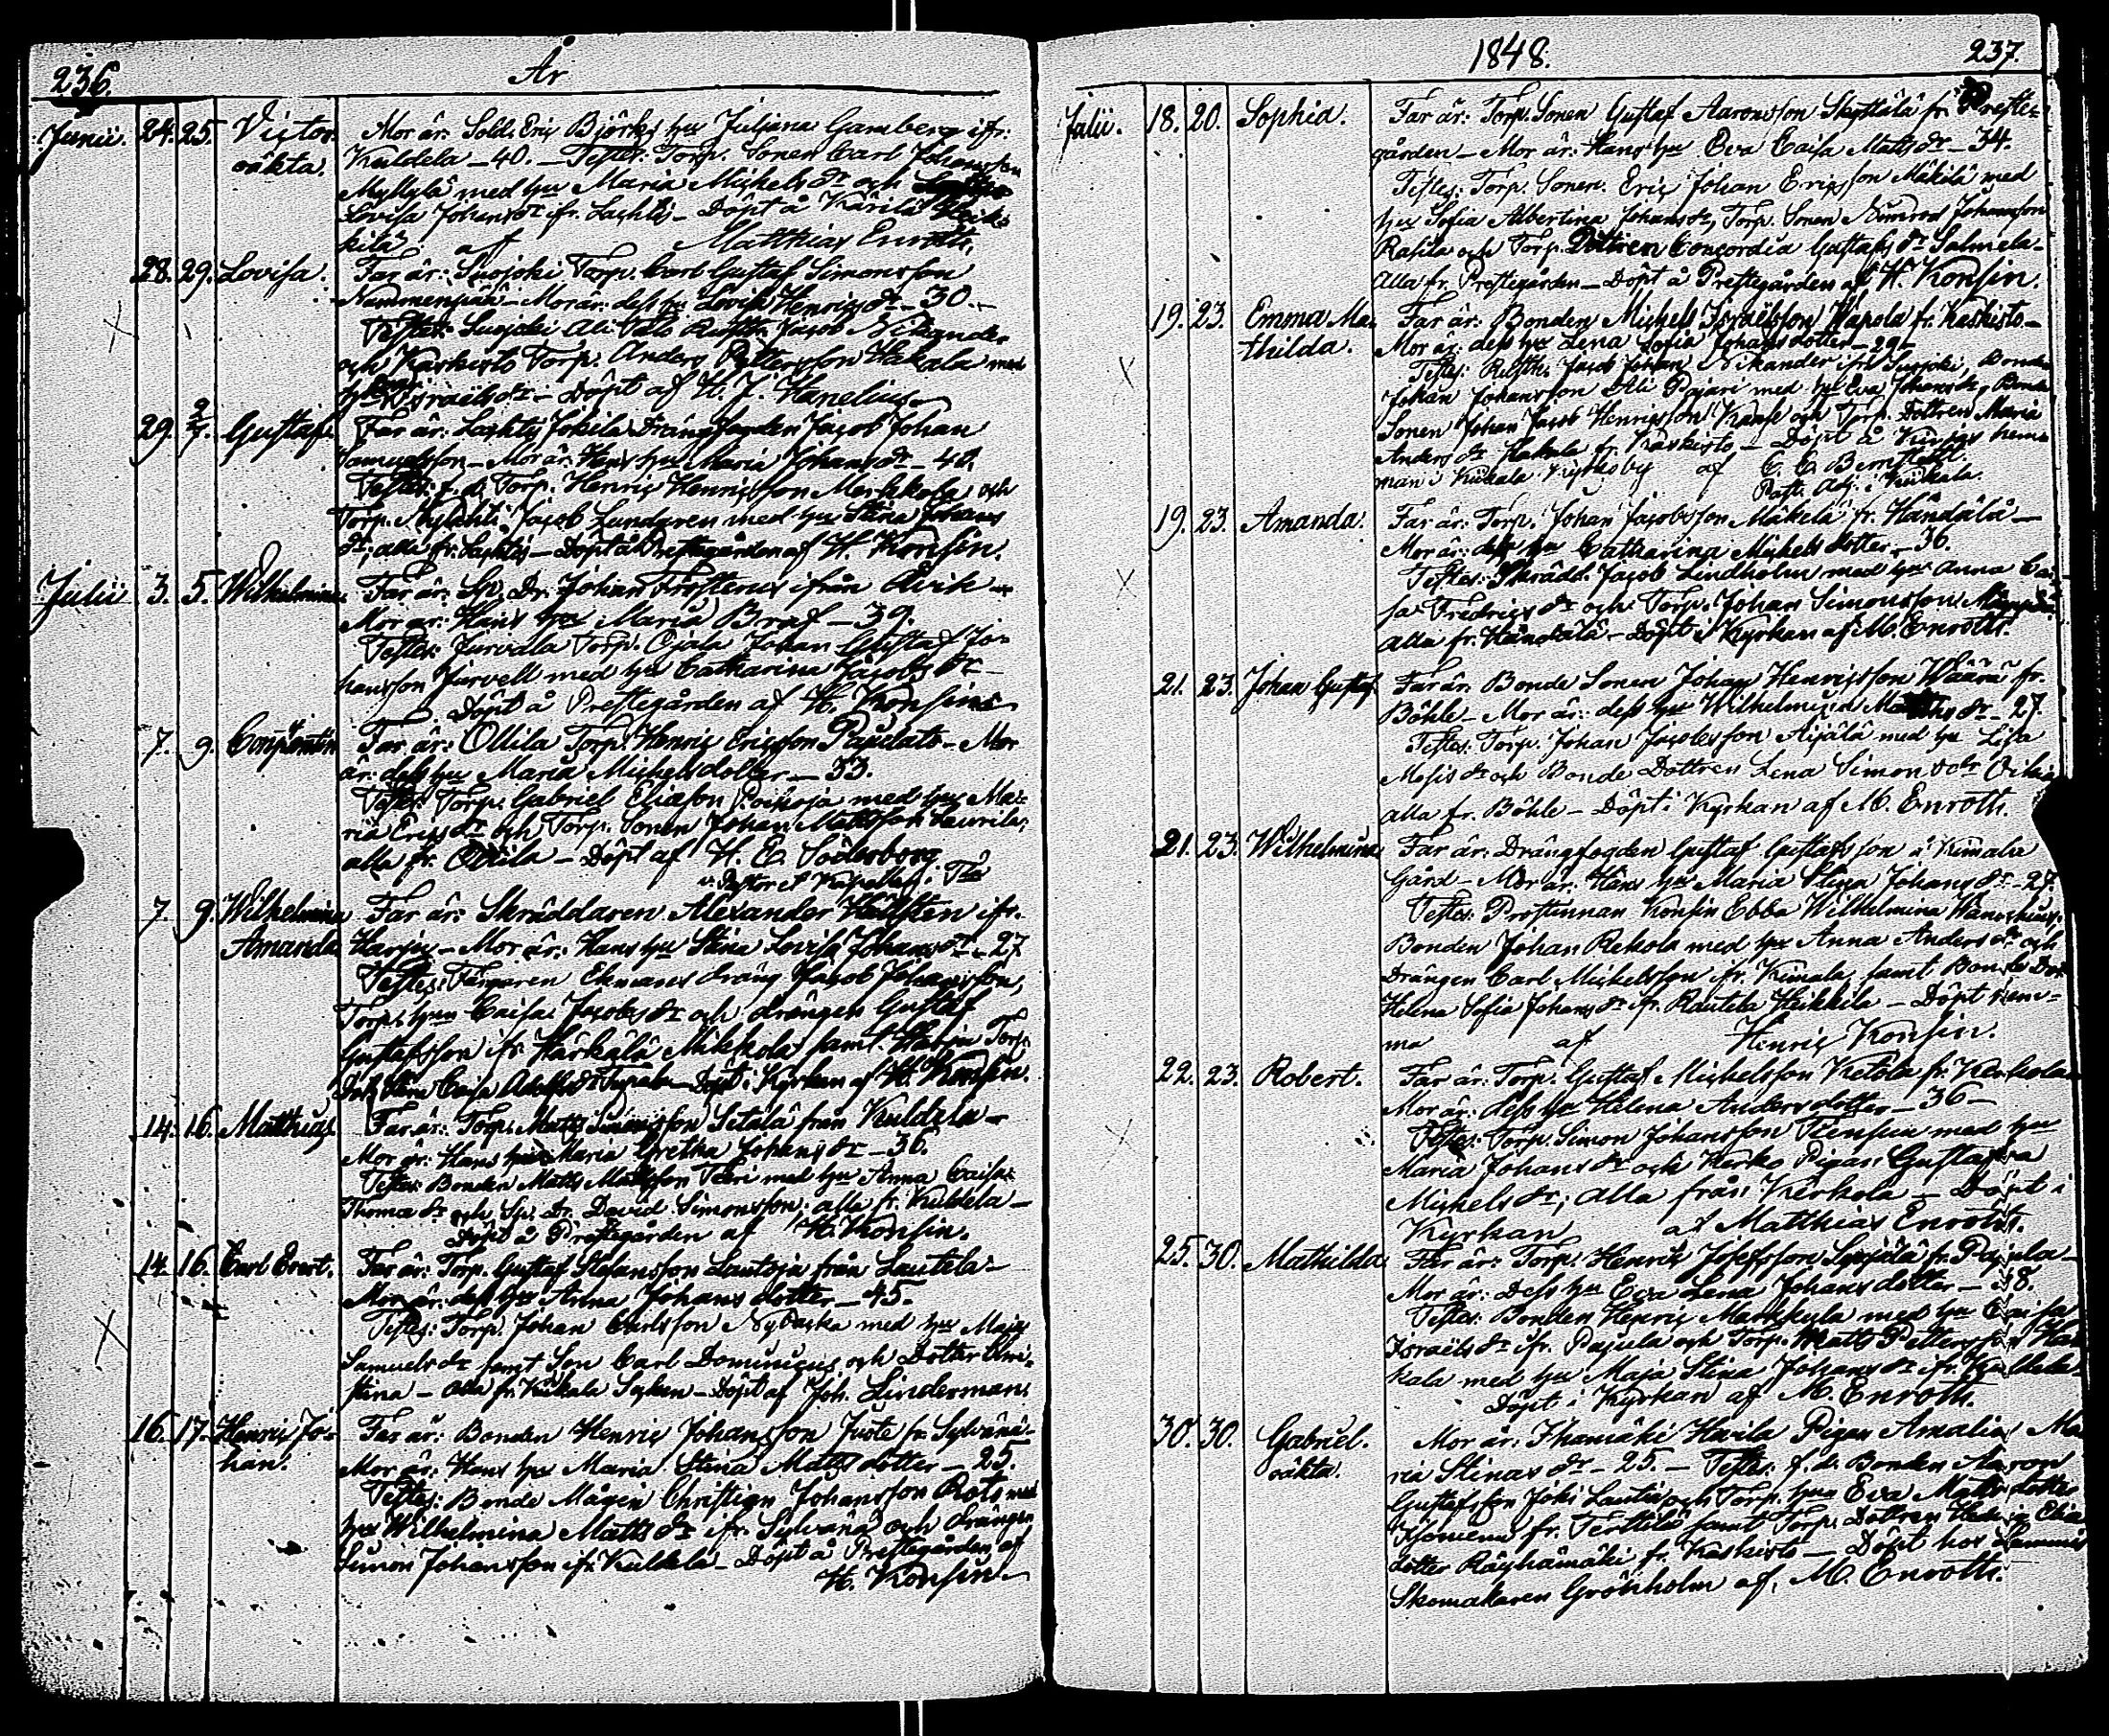 236. År
Junii. 24. 25. Victor. Mor är: Sold. Eric Björks hu Juliana Gamberg ifr.
oäkta. Kuldela – 40. – Testes: Torp. Sonen Carl Johansson
Myllylä med hu Maria Michels dr och
Lovisa Johans dr ifr. Lachtis – Döpt å Kärilä Heik-
kilä af Matthias Enroth.
28. 29. Lovisa. Far är: Suojoki Torp. Carl Gustaf Simonsson
Nummenpää – Mor är: dess hu Lovisa Henrics dr – 30. –
Testes: Suojoki Ali Talo Rusth. Jacob Nikander
och Kaskisto Torp. Anders Pettersson Hakala med
hu Israëls dr – Döpt af H. J. Hanelius
29. 2/7. Gustaf. Far är: Lachtis Jokila Drängfogden Jacob Johan
Samuelsson – Mor är: Hans hu Maria Johans dr – 40.
Testes: f. d. Torp. Henric Henricsson Merkkola och
Torp. Jacob Lundgren med hu Stina Johans
dr; alla fr. Lachtis – Döpt å Prestegården af H. Konsin.
Julii 3. 5. Wilhelmina. Far är: Sp. Dr. Johan Forsterus ifrån Avik –
Mor är: Hans hu Maria Braf – 39.
Testes: Jurvala Torp. Ojala Johan Gustaf Jo-
hansson Jurvell med hu Catharina Jacobs dr –
Döpt å Prestegården af H. Konsin
7. 9. Constantin Far är: Ollila Torp. Henric Ericsson – Mor
är: dess hu Maria Michelsdotter – 33.
Testes: Torp. Gabriel Eliasson Poikoja med hu Ma-
ria Erics dr och Torp. Sonen Johan Mattsson Laurila;
alla fr. Ollila – Döpt af H. E. Söderborg
v. Pastor et Kapellan i
7. 9. Wilhelmina Far är: Skräddaren Alexander Hällsten ifr.
Amanda Harju – Mor är: Hans hu Stina Lovisa Johans dr – 27
Testes: Färgaren Ekmans dräng Jacob Johansson,
Torp. hu Caisa Jacobs dr och drängen Gustaf
Gustafsson ifr. Härkälä Mikkola samt Harju Torp.
Dott. Stina Caisa Adolfs dr – Döpt i Kyrkan af H. Konsin.
14. 16. Matthias. Far är: Torp. Matts Simonsson Setälä från Kuldela –
Mor är: Hans hu Maria Gretha Johans dr – 36.
Testes: Bonden Matts Mattsson med hu Anna Caisa
Thomæ dr och Sp. Dr. David Simonsson; alla fr. Kuldela –
Döpt å Prestegården af H. Konsin.
14. 16. Carl Evert. Far är: Torp. Gustaf Stefansson Lautoja från Lautela –
Mor är: dess hu Anna Johans dotter – 45.
Testes: Torp. Johan Carlsson Nybacka med hu Maja
Samuels dr samt Son Carl Dominicus och Dotter Chri-
stina – alla fr. Kiikala Socken – Döpt af Joh. Linderman
16. 17. Henric Jo- Far är: Bonden Henric Johansson Juote fr. Sylvänä –
han. Mor är: Hans hu Maria Stina Matts dotter – 25.
Testes: Bonde Mågen Christian Johansson Rots med
hu Wilhelmina Matts dr ifr. Sylvänä och drängen
Simon Johansson ifr. Kuldela – Döpt å Prestegården af
H. Konsin
1848. 237.
Julii. 18. 20. Sophia. Far är: Torp. Sonen Gustaf Aaronsson Skyttälä fr. Preste-
gården – Mor är: Hans hu Eva Caisa Matts dr – 34.
Testes: Torp. Sonen. Eric Johan Ericsson Mäkilä med
hu Sofia Albertina Johans dr, Torp. Sonen Nimrod Johansson
Rasila och Torp. Dottren Concordia Gustafs dr Salmela –
Alla fr. Prestegården – Döpt å Prestegården af H. Konsin.
19. 23. Emma Ma- Far är: Bonden Michels Israëlsson Uapola fr. Kaskisto –
thilda. Mor är: dess hu Lena Sofia Johansdotter – 29 –
Testes: Rusth. Jacob Johan Nikander ifr. Suojoki, Bonden
Johan Johansson Ali Pajari med hu Eva Johans dr, Bonde
Sonen Johan Jacob Henricsson och Torp. Dottren Maria
Anders dr Hakala fr. Kaskisto, – Döpt å Kurjas hem-
man i Kiikala Kyrkoby af
Past. Adj. i Kiikala.
19. 23. Amanda. Far är: Torp. Johan Jacobsson Mäkelä fr. Händälä –
Mor är: dess hu Catharina Michels dotter – 36.
Testes: Skrädd. Jacob Lindholm med hu Anna Ca-
sa Fredrics dr och Torp. Johan Simonsson
alla fr. Händälä – Döpt i Kyrkan af M. Enroth.
21. 23. Johan Gustaf. Far är: Bonde Sonen Johan Henricsson Wäärä fr.
Böhle – Mor är: dess hu Wilhelmina Matts dr – 27.
Testes: Torp. Johan Jacobsson Äijälä med hu Lisa
Mosis dr och Bonde Dottren Lena Simons dr
alla fr. Böhle – Döpt i Kyrkan af M. Enroth.
21. 23. Wilhelmina. Far är: Drängfogden Gustaf Gustafsson å Kimala
Gård – Mor är: Hans hu Maria Stina Johans dr – 27.
Testes: Prostinnan Konsin Ebba Wilhelmina Wänochius,
Bonden Johan Rekola med hu Anna Anders dr och
Drängen Carl Michelsson ifr. Kimala, samt Bonde Dott.
Helena Sofia Johans dr ifr. Rautela Heikkilä – Döpt hem-
ma af Henric Konsin.
22. 23. Robert. Far är: Torp. Gustaf Michelsson Ketola fr. Kerkola
Mor är: dess hu Helena Andersdotter – 36 –
Testes: Torp. Simon Johansson med hu
Maria Johans dr och Kerko Pigan Gustafva
Michels dr; alla från Kerkola – Döpt i
Kyrkan af Matthias Enroth.
25. 30. Mathilda. Far är: Torp. Henric Josefsson fr. Pajula –
Mor är: Dess hu Eva Lena Johans dotter – 38.
Testes: Bonden Henric Markkula med hu Caisa
Israëls dr ifr. Pajula och Torp. Matts Pettersson Ha-
kala med hu Maja Stina Johans dr ifr. Kuldela –
Döpt i Kyrkan af M. Enroth.
30. 30. Gabriel. Mor är: Ihamäki Havila Pigan Amalia Ma-
oäkta. ria Stinas dr – 25. – Testes: f. d. Bonden Aaron
Gustafsson Joki och Torp. hu Eva Matts dotter
fr. Terttilä samt Torp. Dottren Elia
dotter Räyhämäki fr. Kaskisto – Döpt hos
Skomakaren Grönholm af M. Enroth.